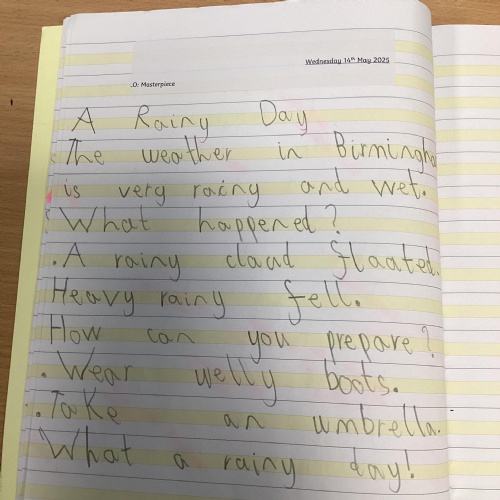 Wednesday 14th May 2025
.O: Masterpiece
A Rainy Day
The weather in Birmingha
is very rainy and wet.
What happened?
.A rainy cloud floated.
Heavy rainy fell.
How can you prepare?
.Wear welly boots.
.Take an umbrella.
What a rainy day!